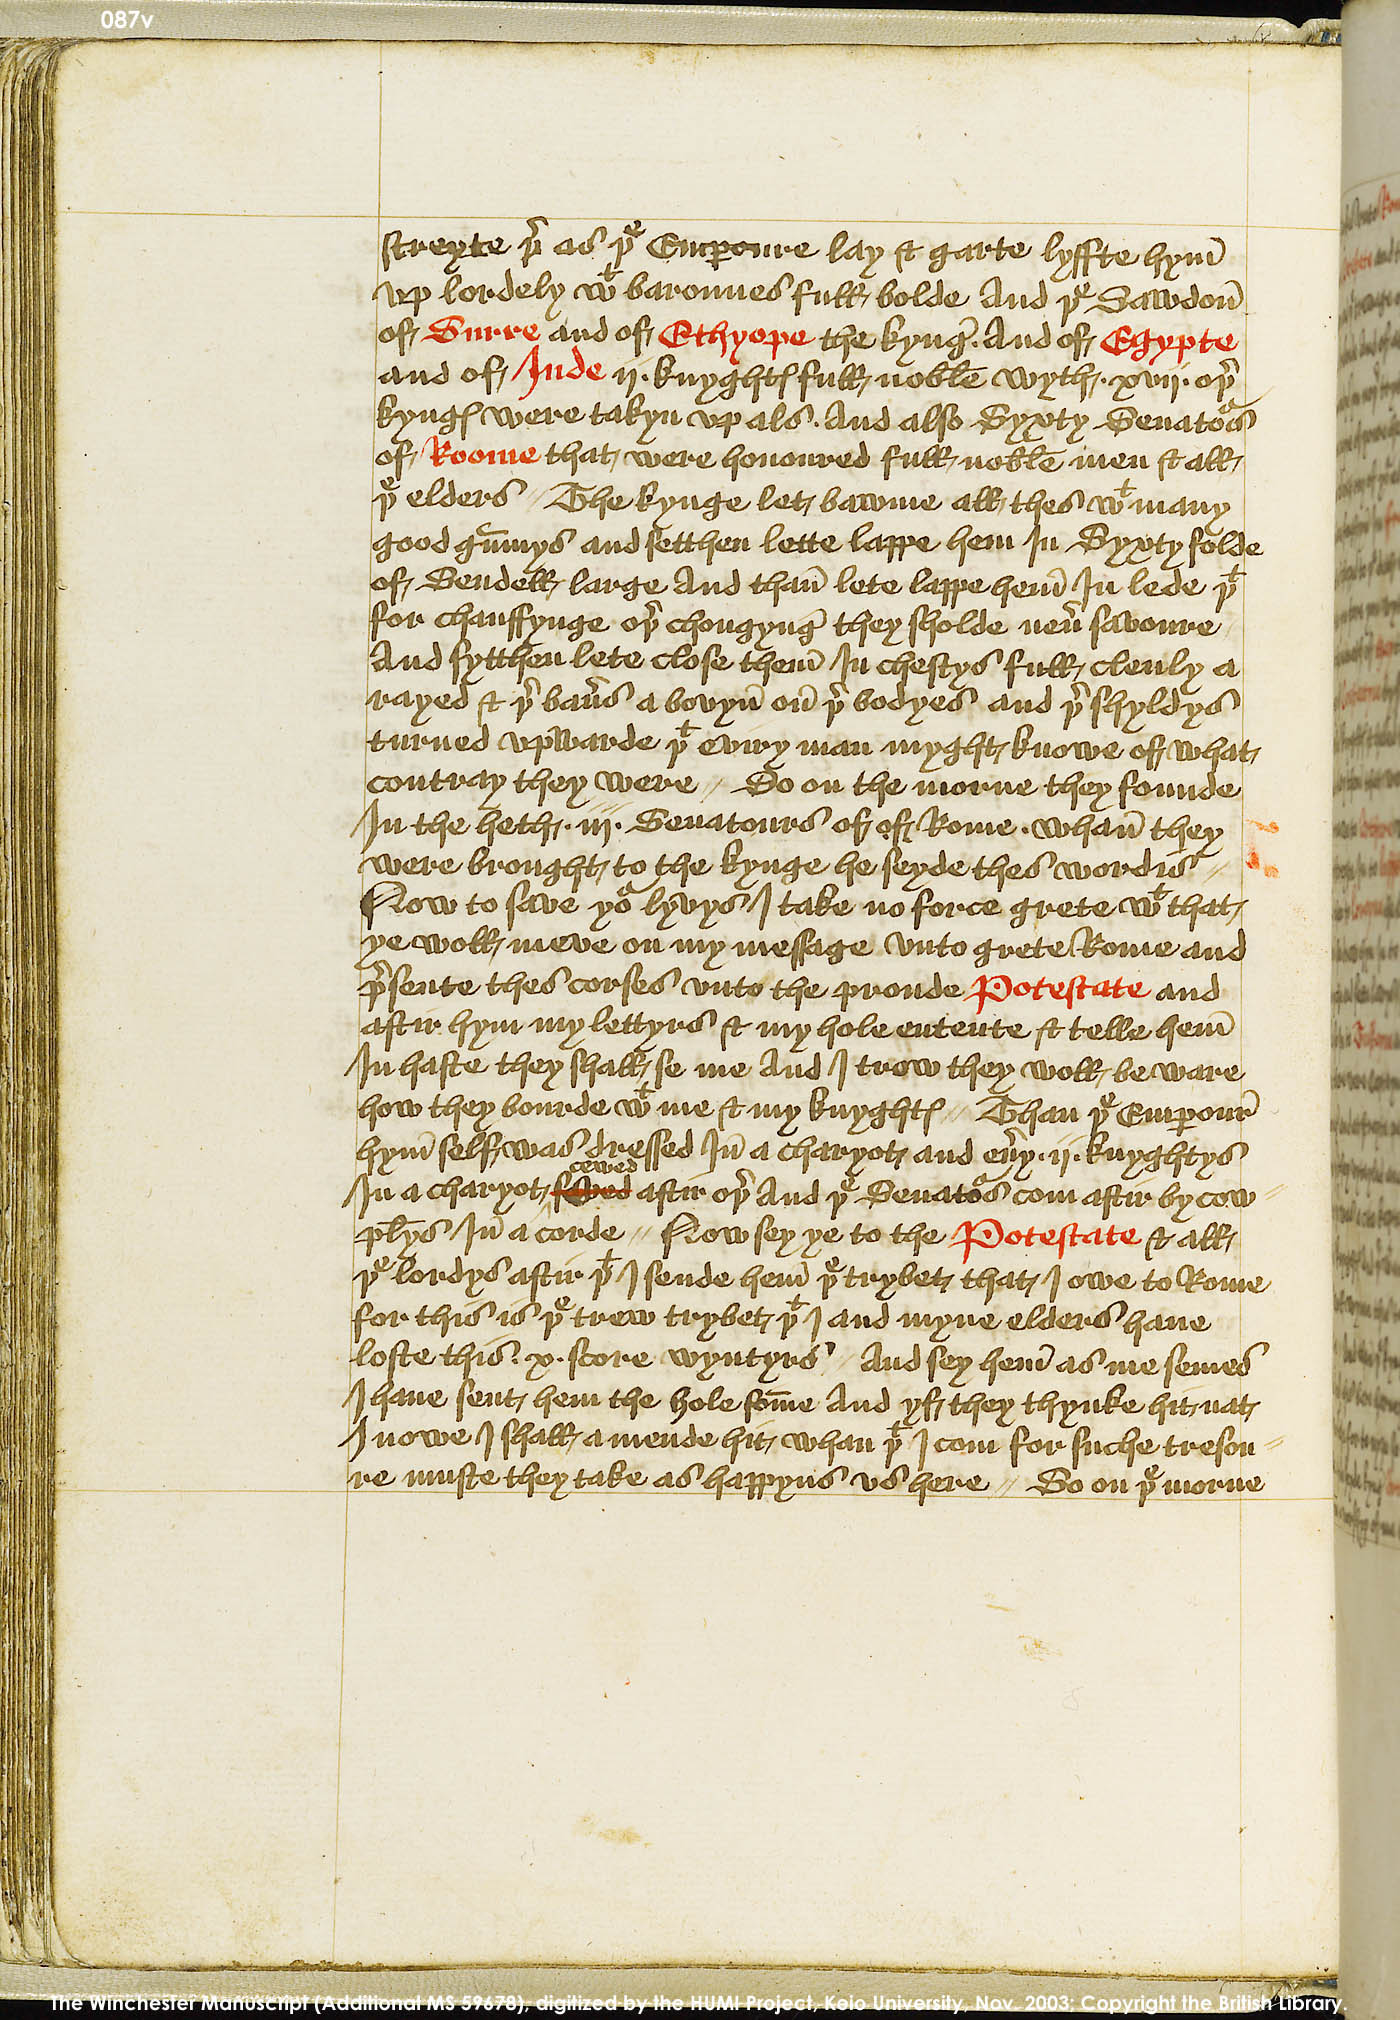 087v
streyte þr as þe Emꝑoure lay & garte lyffte hym̄
vp lordely wt baronnes full bolde And þe Sawdon̄
of Surre and of Ethyope the kynḡ. And of Egypte
and of Inde ij. knyghtꝭ full noble wyth. xvij. oþr
kyngꝭ were takyn vp als. And also Syxty Senatoꝛs
of Roome that were honoured full noble men & all
þe elders // The kynge let bawme all thes wt many
good gūmys and setthen lette lappe hem In Syxty folde
of Sendell large And than̄ lete lappe hem̄ In lede þt
for chauffynge oþr chongynḡ they sholde neuer savoure
And sytthen lete close them̄ In chestys full clenly a
rayed & þr baners a bovyn̄ on̄ þr bodyes and þr shyldys
turned vpwarde þt eviry man myght knowe of what
contray they were // So on the morne they founde
In the heth. iij. Senatours of of Rome. whan̄ they
were brought to the kynge he seyde thes wordis //
Now to save yoꝛ lyvys I take no force grete wt that
ye woll meve on my message vnto grete Rome and
p̄sente thes corses vnto the proude Potestate and
aftir hym my lettyrs & my hole entente & telle hem̄
In haste they shall se me And I trow they woll be ware
how they bourde wt me & my knyghtꝭ // Than þe Emꝑour̄
hym̄ self was dressed In̄ a charyot and euery. ij. knyghtys
cewed
In a charyot aftir oþr And þe Senatoꝛs com aftir by cow//
plys In̄ a corde // Now sey ye to the Potestate & all
þe lordys aftir þt I sende hem̄ þe trybet that I owe to Rome
for this is þe trew trybet þt I and myne elders haue
loste this. x. score wyntyrs // And sey hem̄ as me semes
I haue sent hem the hole som̄e And yf they thynke hit nat
I nowe I shall a mende hit whan þt I com for suche tresou//
re muste they take as happyns vs here // So on þe morne
The Winchester Manuscript (Additional MS 59678), digitized by the HUMI Project, Keio University, Nov. 2003; Copyright the British Library.